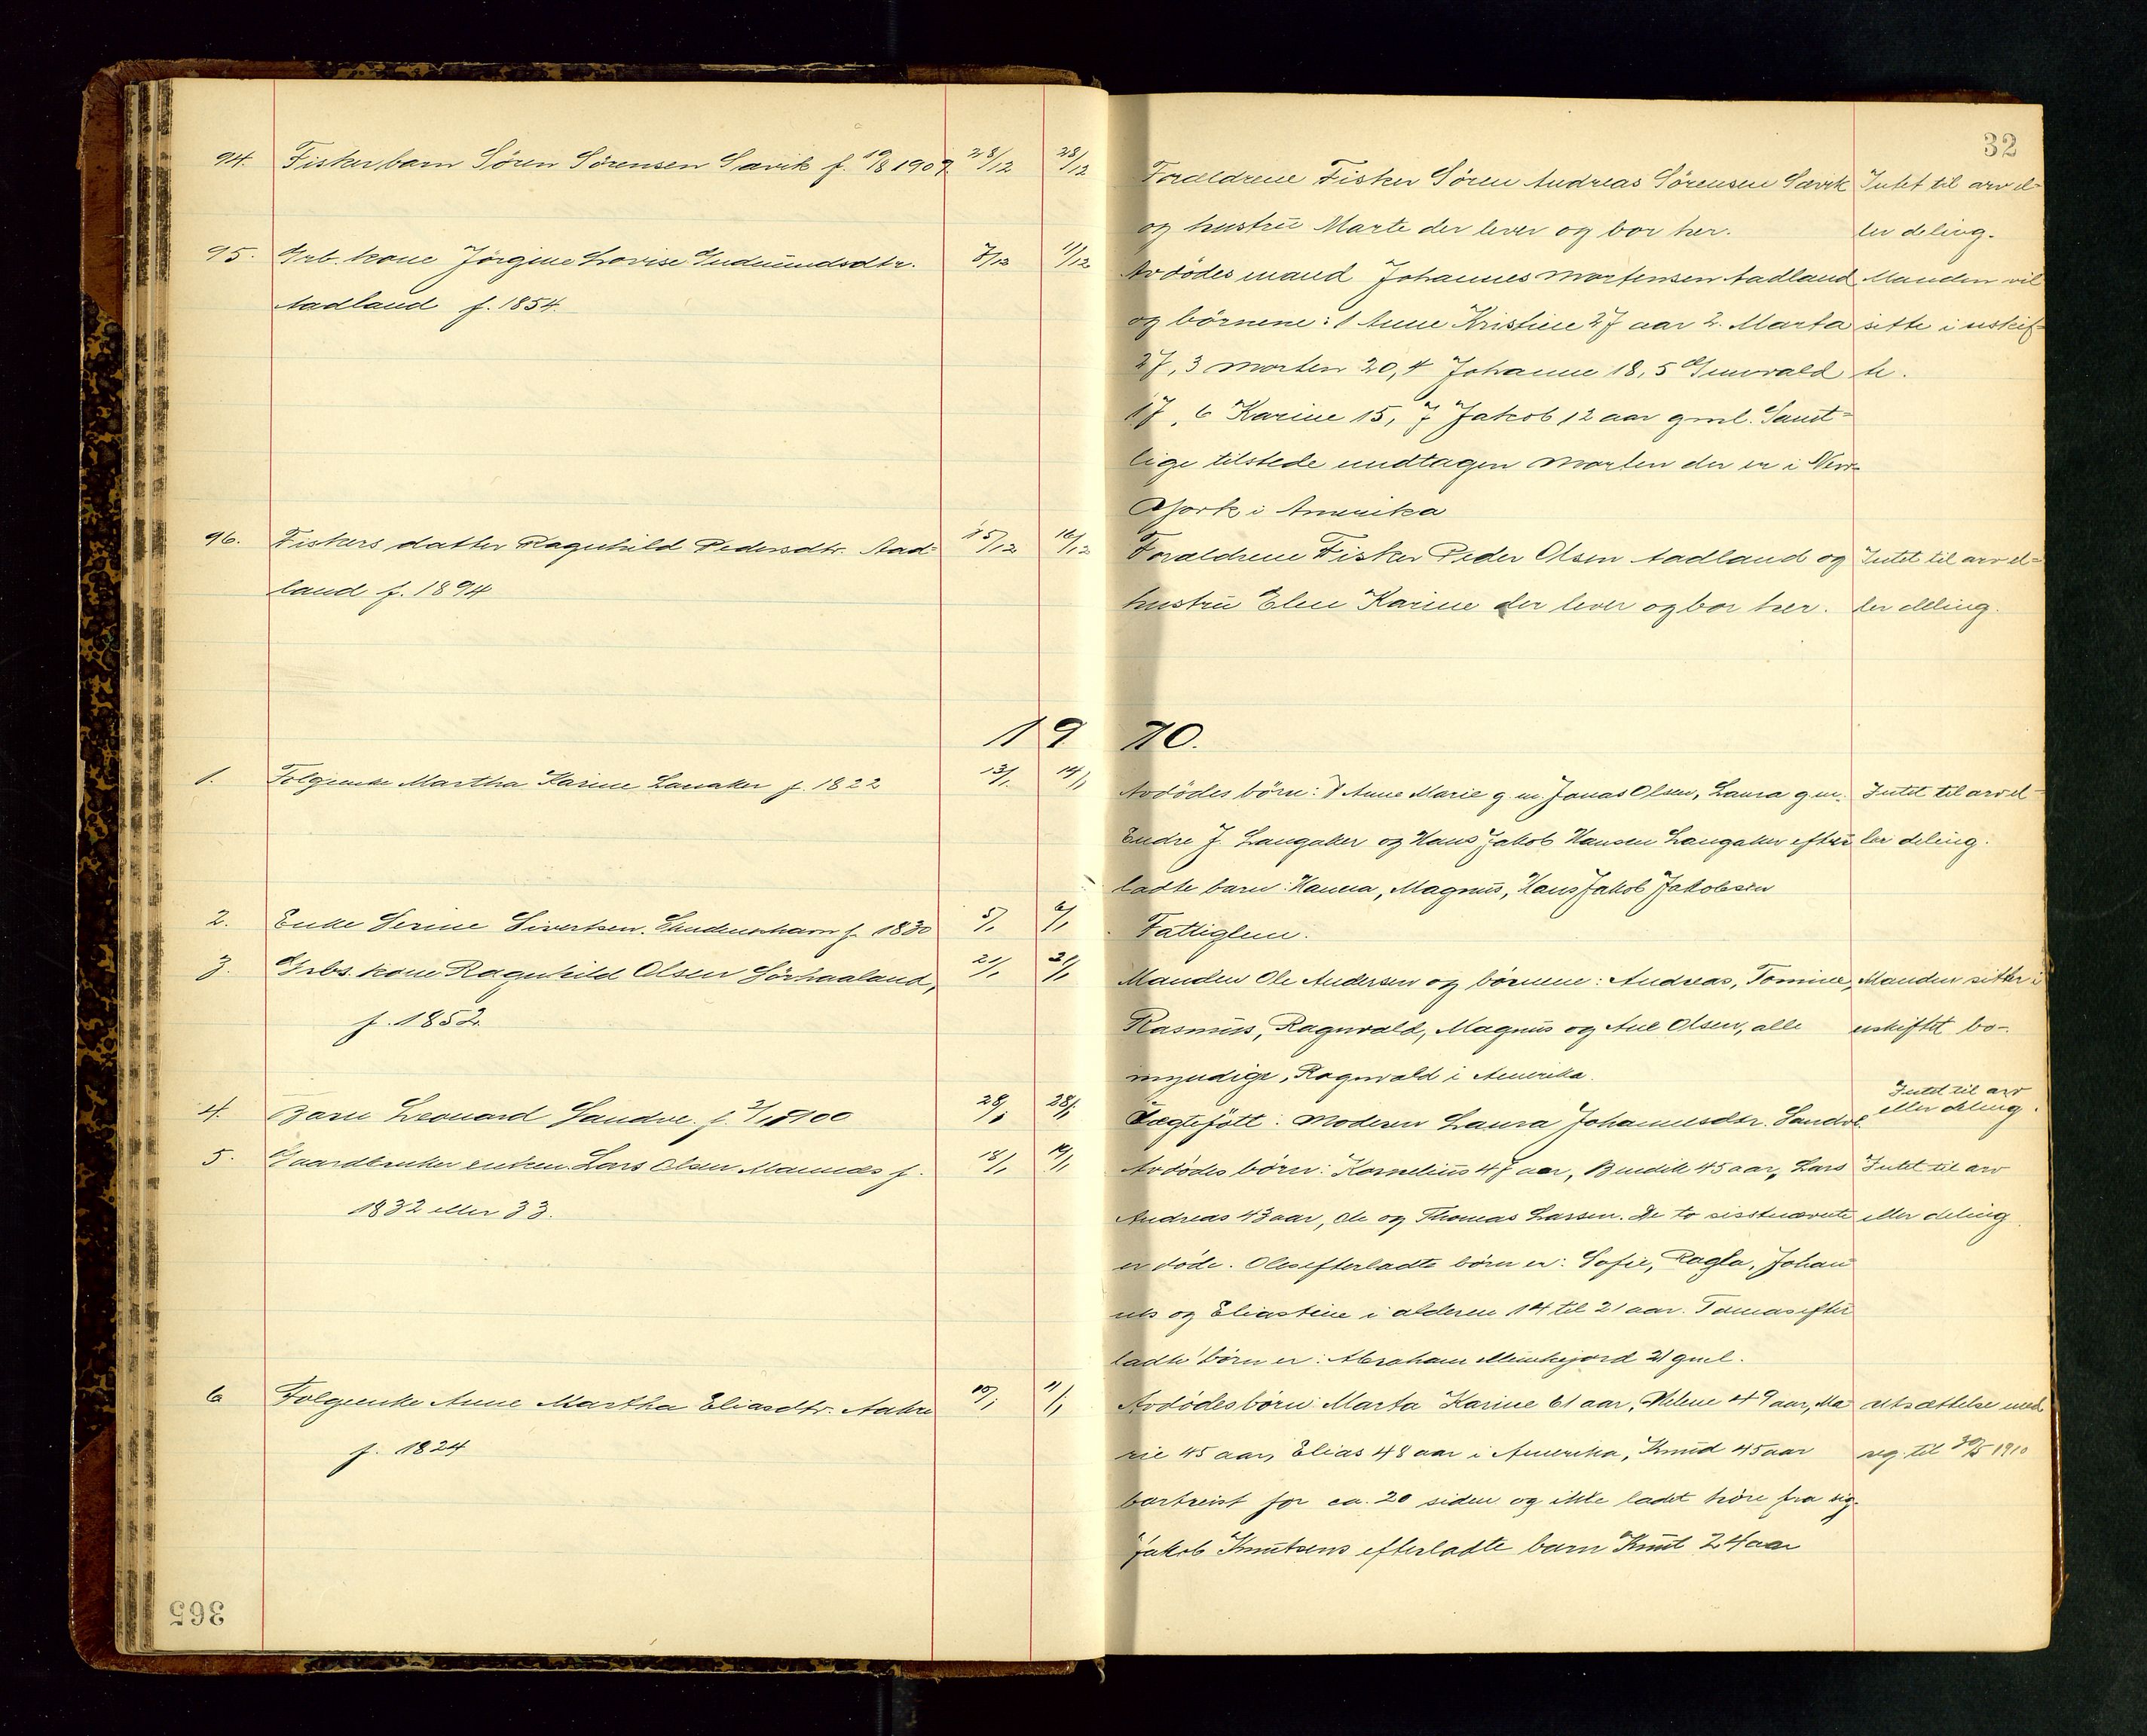 32
94. Fiskerbarn Sören Sörensen Sævik f. 19/8 1909. 28/12 28/12
Foraeldrene Fisker Sören Andreas Sörensen Sævik Intet til arv el-
og hustrü Marte der lever og bor her. ler deling.
95. Grb. kone Jörgine Lovise Gudmundsdtr. 7/12 11/12
Aadland f. 1854.
Avdödes mand Johannes Mortensen Aadland Manden vil
og börnene: 1 Anne Kristine 27 aar 2. Marta sitte i uskif-
27, 3 Morten 20, 4 Johanne 18, 5 Gunvald te.
17, 6 Karine 15, 7 Jakob 12 aar gml. Samt-
lige tilstede undtagen Morten der er i New
York i Amerika
96. Fiskers datter Ragnhild Pedersdtr. Aad- 15/12 16/12
land f. 1894
Foraeldrene Fisker Peder Olsen Aadland og Intet til arv el-
hustrü Elen Karine der lever og bor her. ler deling.
19 10.
1. Folgeenke Martha Karine Lanaker f. 1822 13/1. 14/1
Avdödes börn: 1 Anne Marie g.m. Jonas Olsen, Laura g.m. Intet til arv el-
Endre J. Langaker og Hans Jakob Hansen Langaker efter ler deling.
ladte barn: Hanna, Magnüs, Hans Jakob Jakobsen
2. Enke Serine Sivertsen. f. 1830 5/1 6/1
Fattiglem.
3. Grbs. kone Ragnhild Olsen Sörhaaland, 21/1 21/1
f. 1852.
Manden Ole Andersen og börnene: Andreas, Tomine, Manden sitter i
Rasmüs, Ragnvald, Magnüs og Ane Olsen, alle uskiftet bo-.
myndige, Ragnvald i Amerika.
4. Barn Leonard Sandve. f. 2/1 1900 28/1 28/1
Uægtefött: Moderen Laura Johannesdtr. Sandve Intet til arv
eller deling.
5. Gaardbruker enkem. Lars Olsen Mannes f. 18/1 19/1
1832 eller 33.
Avdödes börn: Kornelius 47 aar, Bendik 45 aar, Lars Intet til arv
Andreas 43 aar, Ole og Thomas Larsen. De to sisstnævnte eller deling.
er döde. Oles efterladte börn er: Sofie, Ragla, Johan
nes og Eliastine i alderen 14 til 21 aar. Tomas efter
ladte börn er: Abraham 21 gml.
6 Folgeenke Anne Martha Eliasdtr. Aakre 10/1 11/1
f. 1824
Avdödes börn: Marta Karine 61 aar, Helene 49 aar, Ma utsættelse med
rie 45 aar, Elias 48 aar i Amerika, Knud 45 aar reg. til 30/5 1910
bortreist for ca. 20 siden og ikke ladet höre fra sig.
Jakob Knutsens efterladte barn Knut 24 aar
365